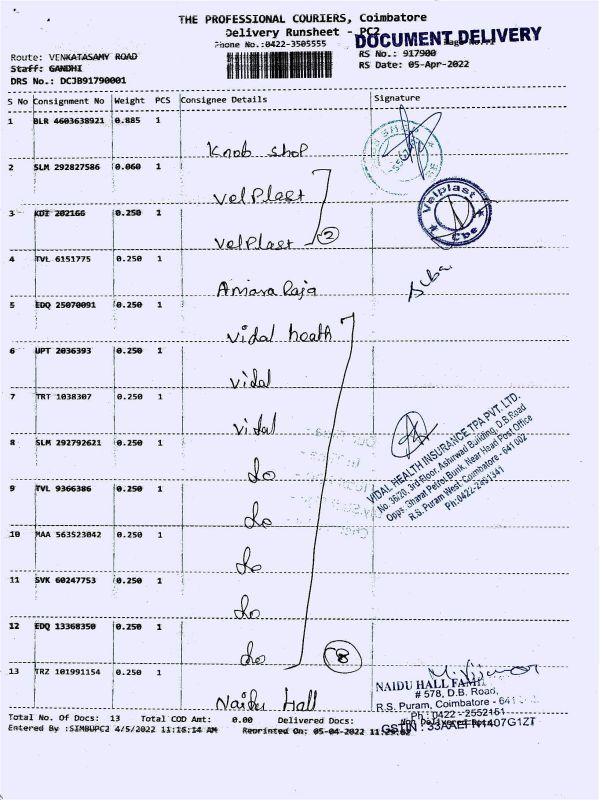 THE PROFESSIONAL COURIERS, Coimbatore
Delivery Runsheet - PC2
DOCUMENT DELIVERY
Phone No.:0422-3505555
Route: VENKATASAMY ROAD
RS No.: 917900
Staff: GANDHI
RS Date: 05-Apr-2022
DRS No.: DCJB91790001
S No Consignment No Weight PCS Consignee Details Signature
1 BLR 4603638921 0.885 1
Knob shop
2 SLM 292827586 0.060 1
VelPlast
3 KDI 202166 0.250 1
VelPlast 2
Velplast
Cbe
4 TVL 6151775 0.250 1
Amara Raja
5 EDQ 25070091 0.250 1
Vidal heath
6 UPT 2036393 0.250 1
Vidal
7 TRT 1038307 0.250 1
Vidal
8 SLM 292792621 0.250 1
do
VIDAL HEALTH INSURANCE TPA PVT. LTD.
No. 3620, 3rd Floor, Ashirwad Building, D.B.Road
Opps. Bharat Petrol Bunk, Near Head Post Office
R.S. Puram West, Coimbatore - 641 002
Ph:0422-2451341
9 TVL 9366386 0.250 1
do
10 MAA 563523042 0.250 1
do
11 SVK 60247753 0.250 1
do
12 EDQ 13368350 0.250 1
do 8
13 TRZ 101991154 0.250 1
Naidu Hall
NAIDU HALL
# 578, D.B. Road,
R.S. Puram, Coimbatore - 641
Ph : 0422 - 2552151
GSTIN : 33AAEFN1407G1ZT
Total No. Of Docs: 13 Total COD Amt: 0.00 Delivered Docs:
Entered By :SIMBUPC2 4/5/2022 11:16:14 AM Reprinted On: 05-04-2022